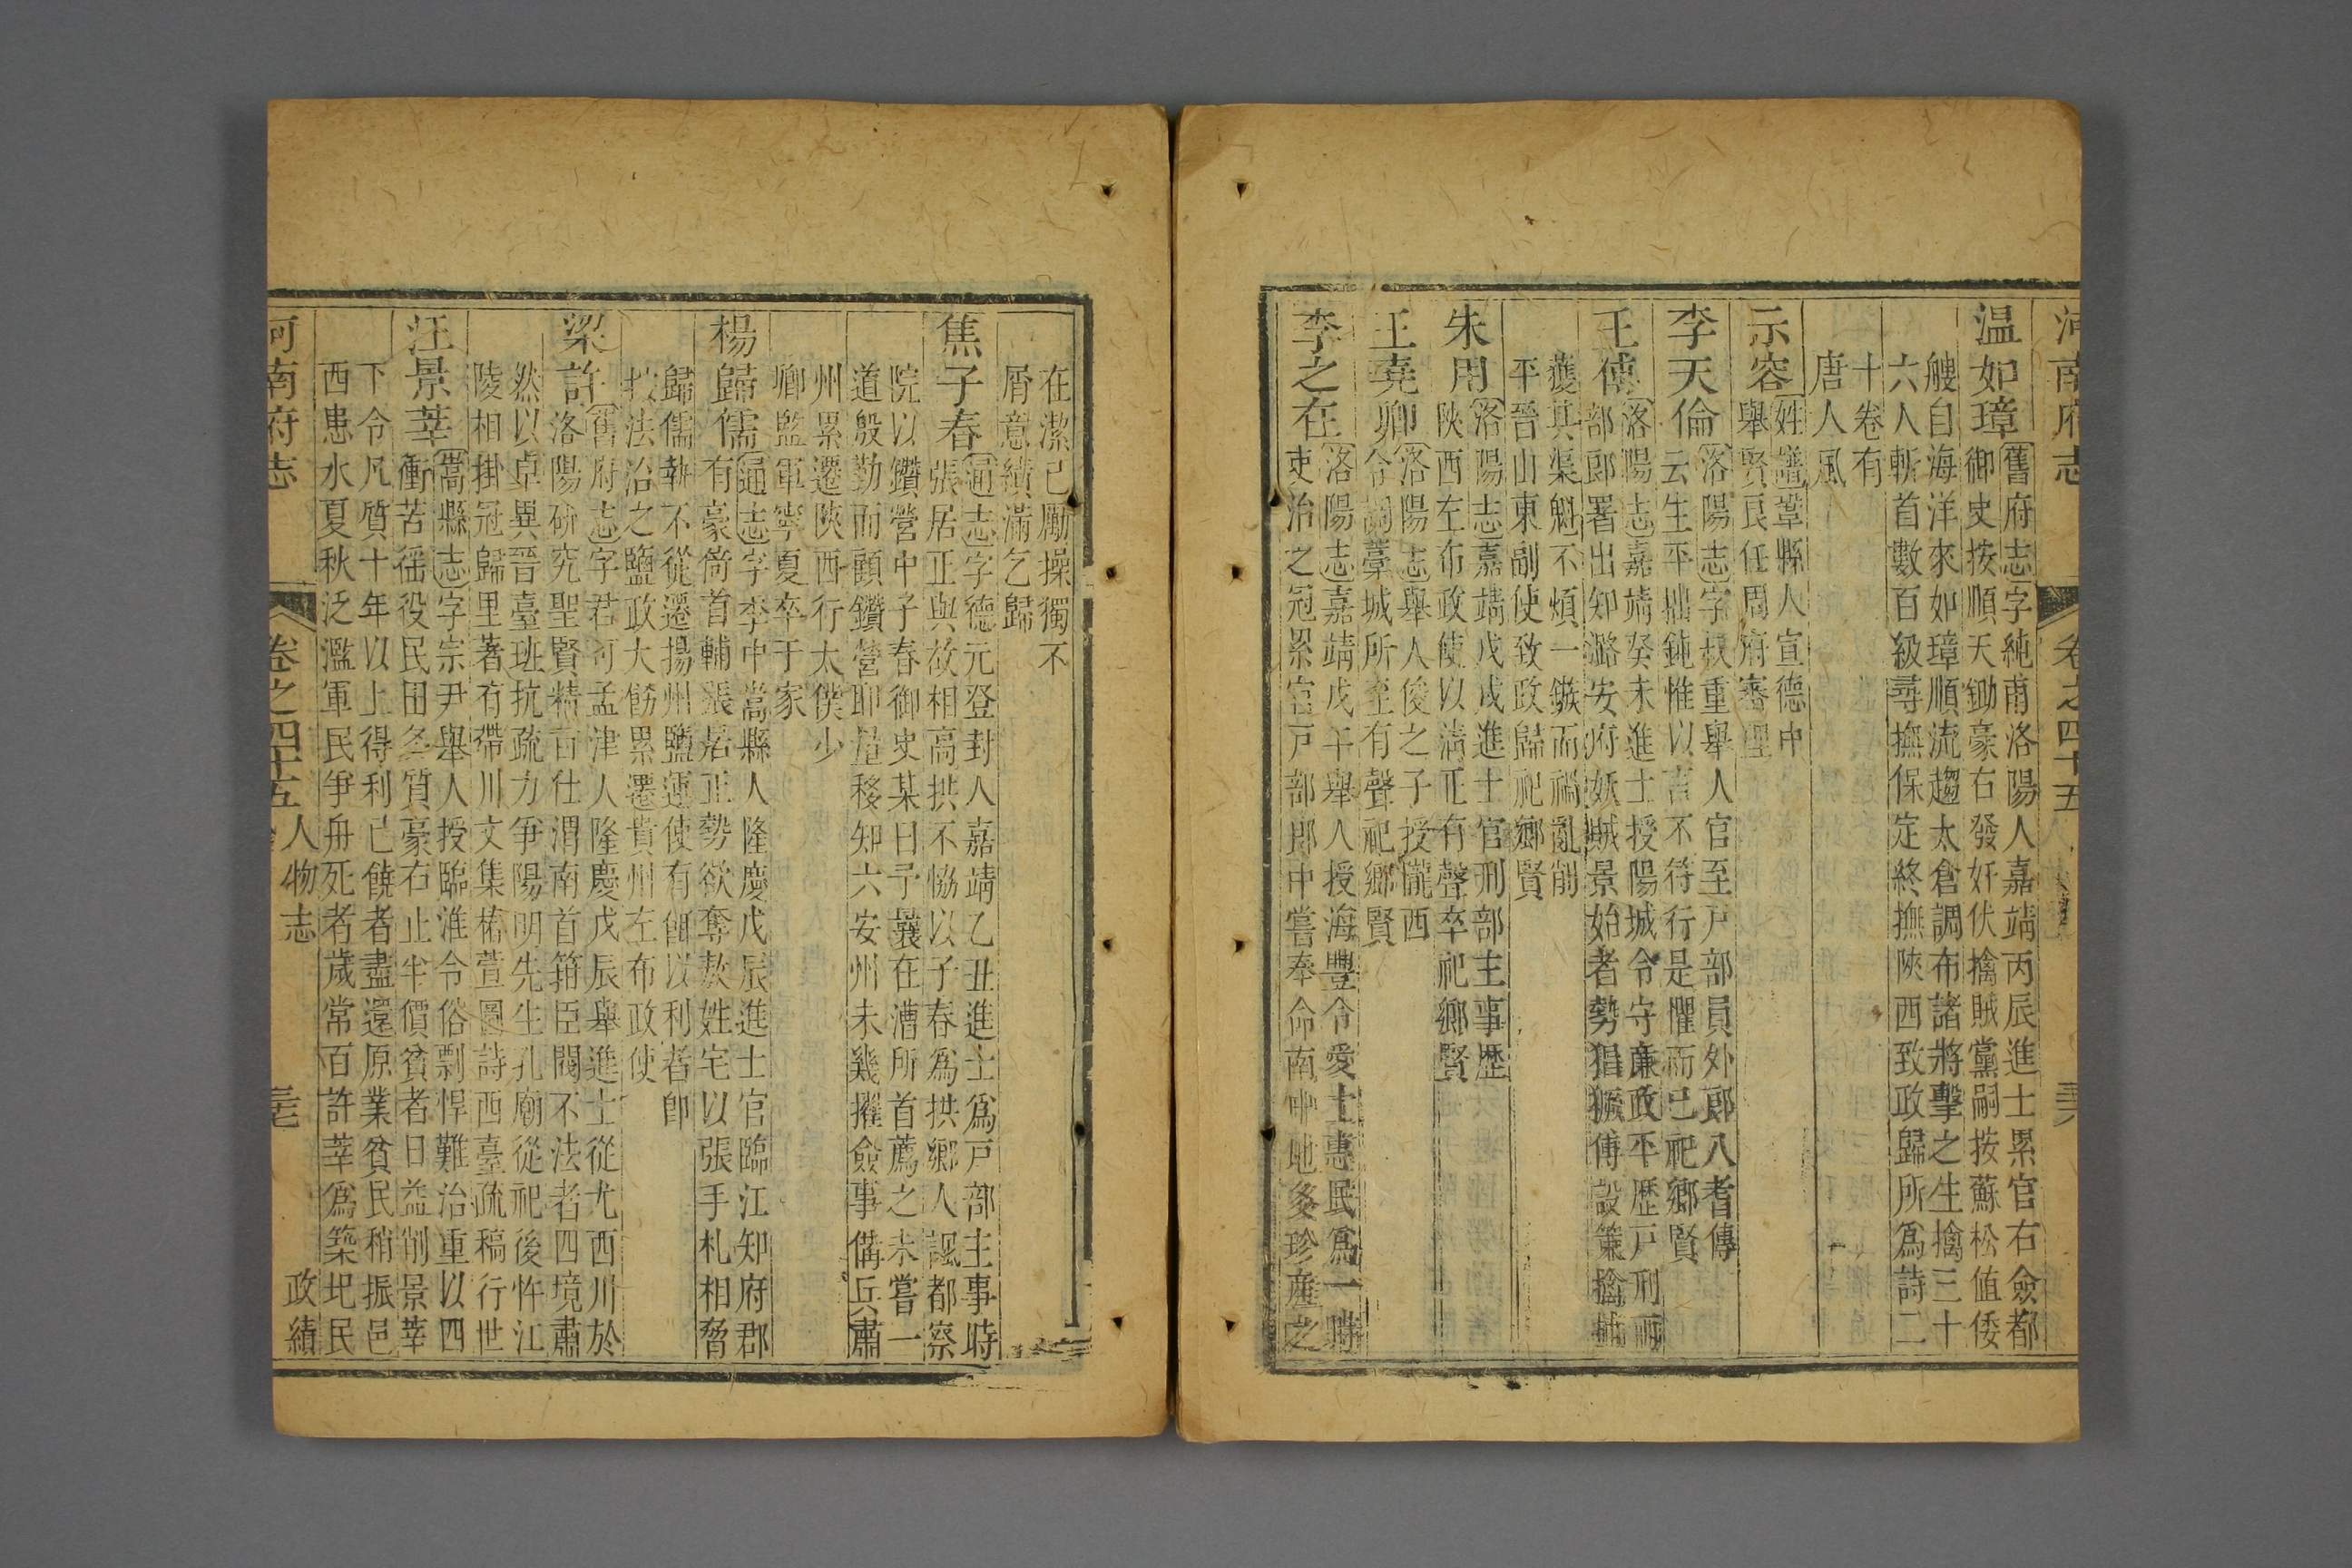 河南府志
卷之四十五
溫如璋
舊府志字純甫洛陽人嘉靖丙辰進士累官右僉都
御史按順天鋤豪右發奸伏擒賊黨嗣按蘇松值倭
艘自海洋來如璋順流趨太倉調布諸將擊之生擒三十
六人斬首數百級尋撫保定終撫陝西致政歸所爲詩二
十卷有
唐人風
示容
姓譜鞏縣人宣德中
舉賢良任周府審理
李天倫
洛陽志字叔重舉人官至戸部員外郎八耆傳
云生平拙鈍惟以言不符行是懼而已祀鄉賢
王傅
洛陽志嘉靖癸未進士授陽城令守廉政平歷戸刑兩
部郎署出知潞安府妖賊景始者勢猖獗傅設策擒捕
獲其渠魁不煩一鏃而禍亂削
平晉山東副使致政歸祀鄉賢
朱用
洛陽志嘉靖戊戌進士官刑部主事歷
陝西左布政使以淸正有聲卒祀鄉賢
王堯卿
洛陽志舉人俊之子授隴西
令調藁城所至有聲祀鄉賢
李之在
洛陽志嘉靖戊午舉人授海豐令愛士惠民爲一時
吏治之冠累官戸部郎中嘗奉命南中地多珍産之
在潔己勵操獨不
屑意績滿乞歸
焦子春
通志字德元登封人嘉靖乙丑進士爲戸部主事時
張居正與故相高拱不協以子春爲拱鄉人諷都察
院以鑽營中子春御史某曰予曩在漕所首薦之未嘗一
道殷勤而顧鑽營耶量移知六安州未幾擢僉事備兵肅
州累遷陝西行太僕少
卿監軍寧夏卒于家
楊歸儒
通志字李中嵩縣人隆慶戊辰進士官臨江知府郡
有豪筩首輔張居正勢欲奪敖姓宅以張手札相脅
歸儒執不從遷揚州鹽運使有餌以利者卽
抶法治之鹽政大飭累遷貴州左布政使
梁許
舊府志字君可孟津人隆慶戊辰舉進士從尤西川於
洛陽硏究聖賢精旨仕渭南首箝臣閹不法者四境肅
然以卓異晉臺班抗疏力爭陽明先生孔廟從祀後忤江
陵相掛冠歸里著有帶川文集椿萱圖詩西臺疏稿行世
汪景莘
嵩縣志字宗尹舉人授臨淮令俗剽悍難治重以四
衝苦徭役民田多質豪右止半價貧者日益削景莘
下令凡質十年以上得利已饒者盡還原業貧民稍振邑
西患水夏秋泛濫軍民爭舟死者歲常百許莘爲築圯民
河南府志
卷之四十五
人物志
政績